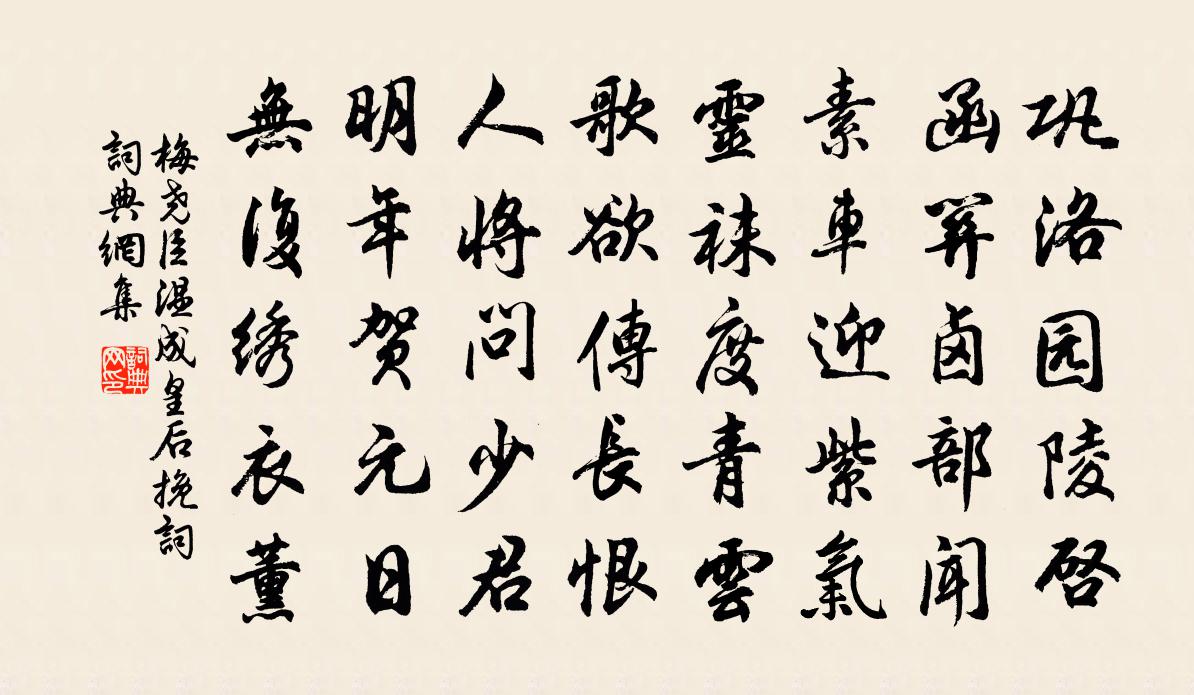 巩洛园陵启
函关卤部闻
素車迎紫氣
靈袜度青雲
歌欲傳長恨
人将問少君
明年贺元日
無復绣衣薰
梅尧臣温成皇后挽詞
詞典網集
詞典网印